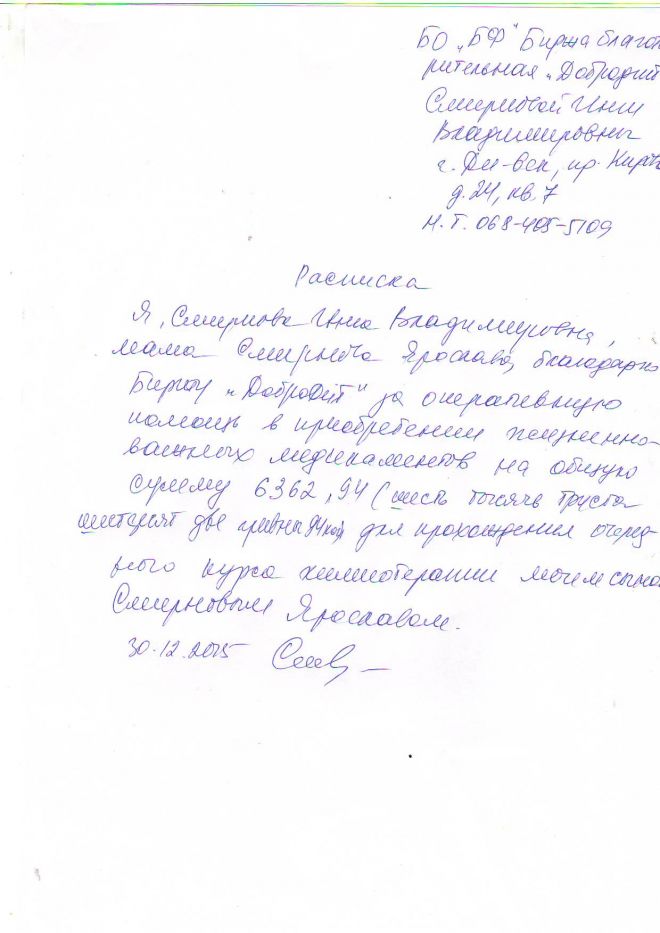 БО „БФ“ Биржа благот
рительная „Добродит
Смирновой Инны
Владимировны
г. Дн-вск, пр. Киров
д. 24, кв. 7
М.Т. 068-405-5109
Расписка
Я, Смирнова Инна Владимировна,
мама Смирнова Ярослава, благодарю
Биржу „Добродит“ за оперативную
помощь в приобретении жизненно-
важных медикаментов на общую
сумму 6362,94 (шесть тысяч триста
шестьдесят две гривны 94 коп) для прохождения очеред-
ного курса химиотерапии моим сыном
Смирновым Ярославом.
30.12.2015